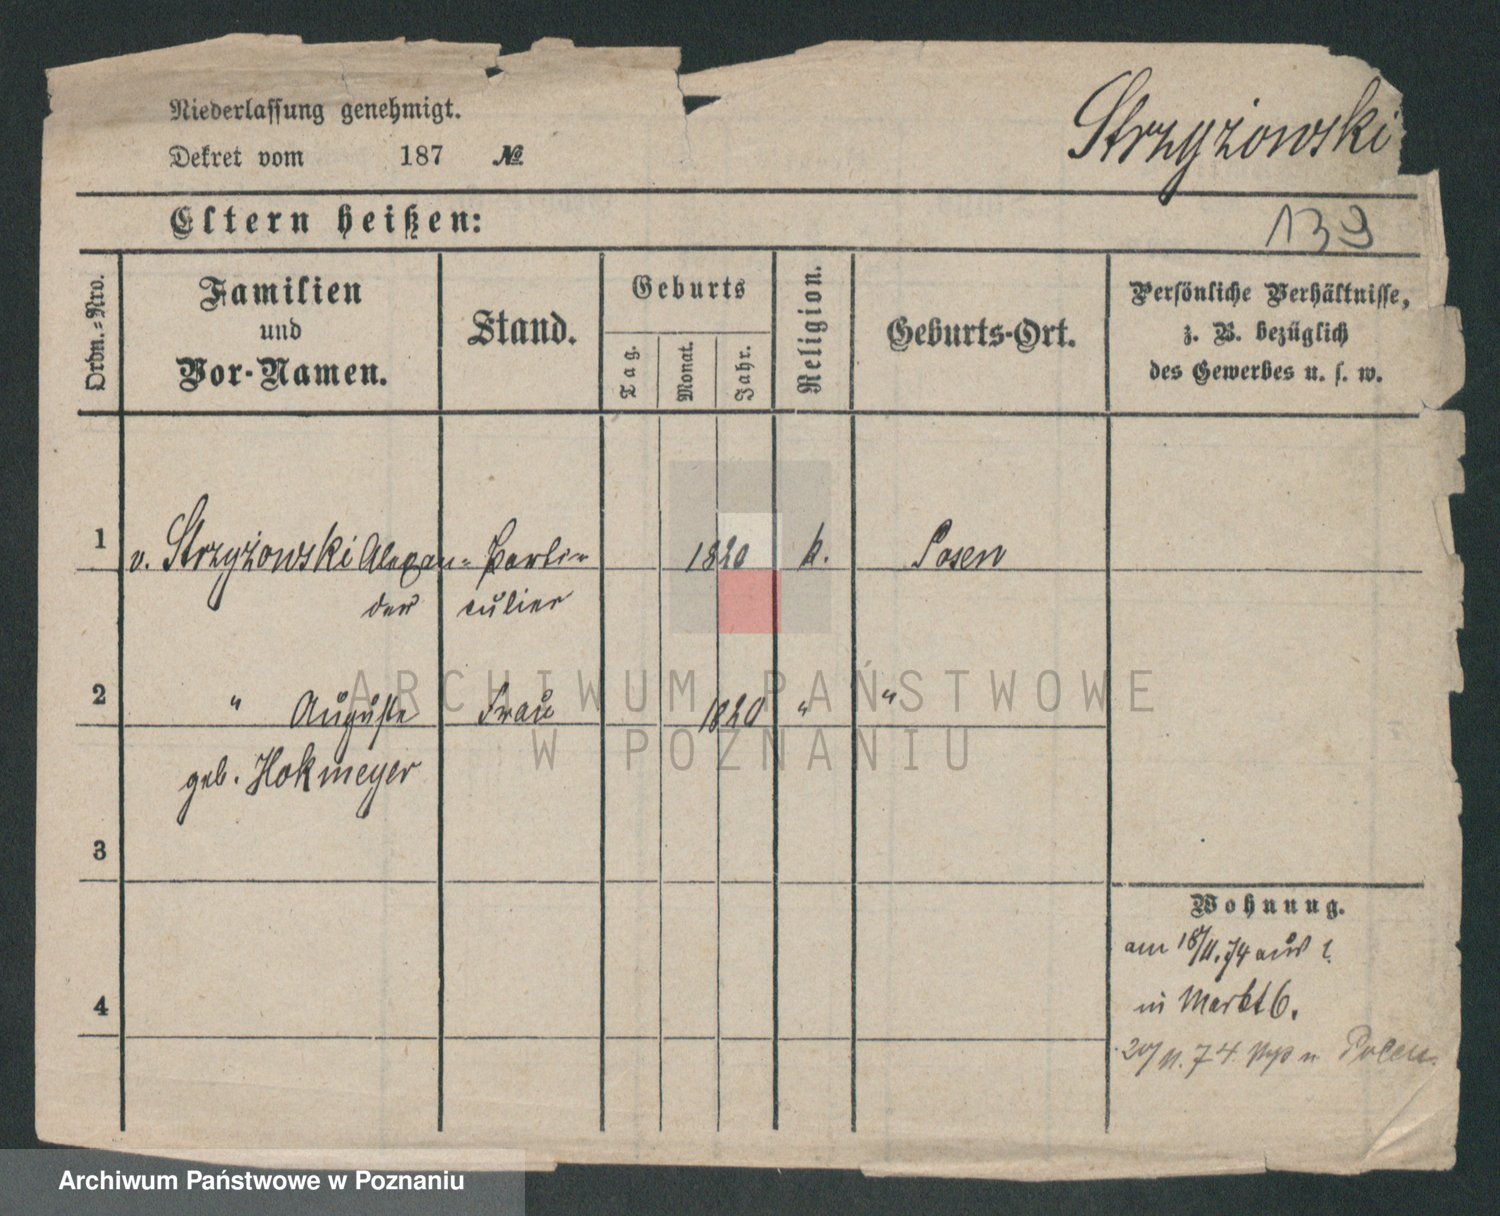 Niederlassung genehmigt.
Dekret vom 187 №
Strzyżowski
Eltern heißen:
139
Ordn.=Nro.
Familien
und
Vor-Namen.
Stand.
Geburts
Tag.
Monat.
Jahr.
Religion.
Geburts-Ort.
Persönliche Verhältnisse,
z. B. bezüglich
des Gewerbes u. s. w.
1 v. Strzyżowski Alexan= Parti= 1820 k. Posen
der culier
2 " Auguste Frau 1820 " "
geb. Hokmeyer
3
4
Wohnung.
am 18/11.74 aus
in Markt 6.
20/11.74. n Polen.
ARCHIWUM PAŃSTWOWE
W POZNANIU
Archiwum Państwowe w Poznaniu